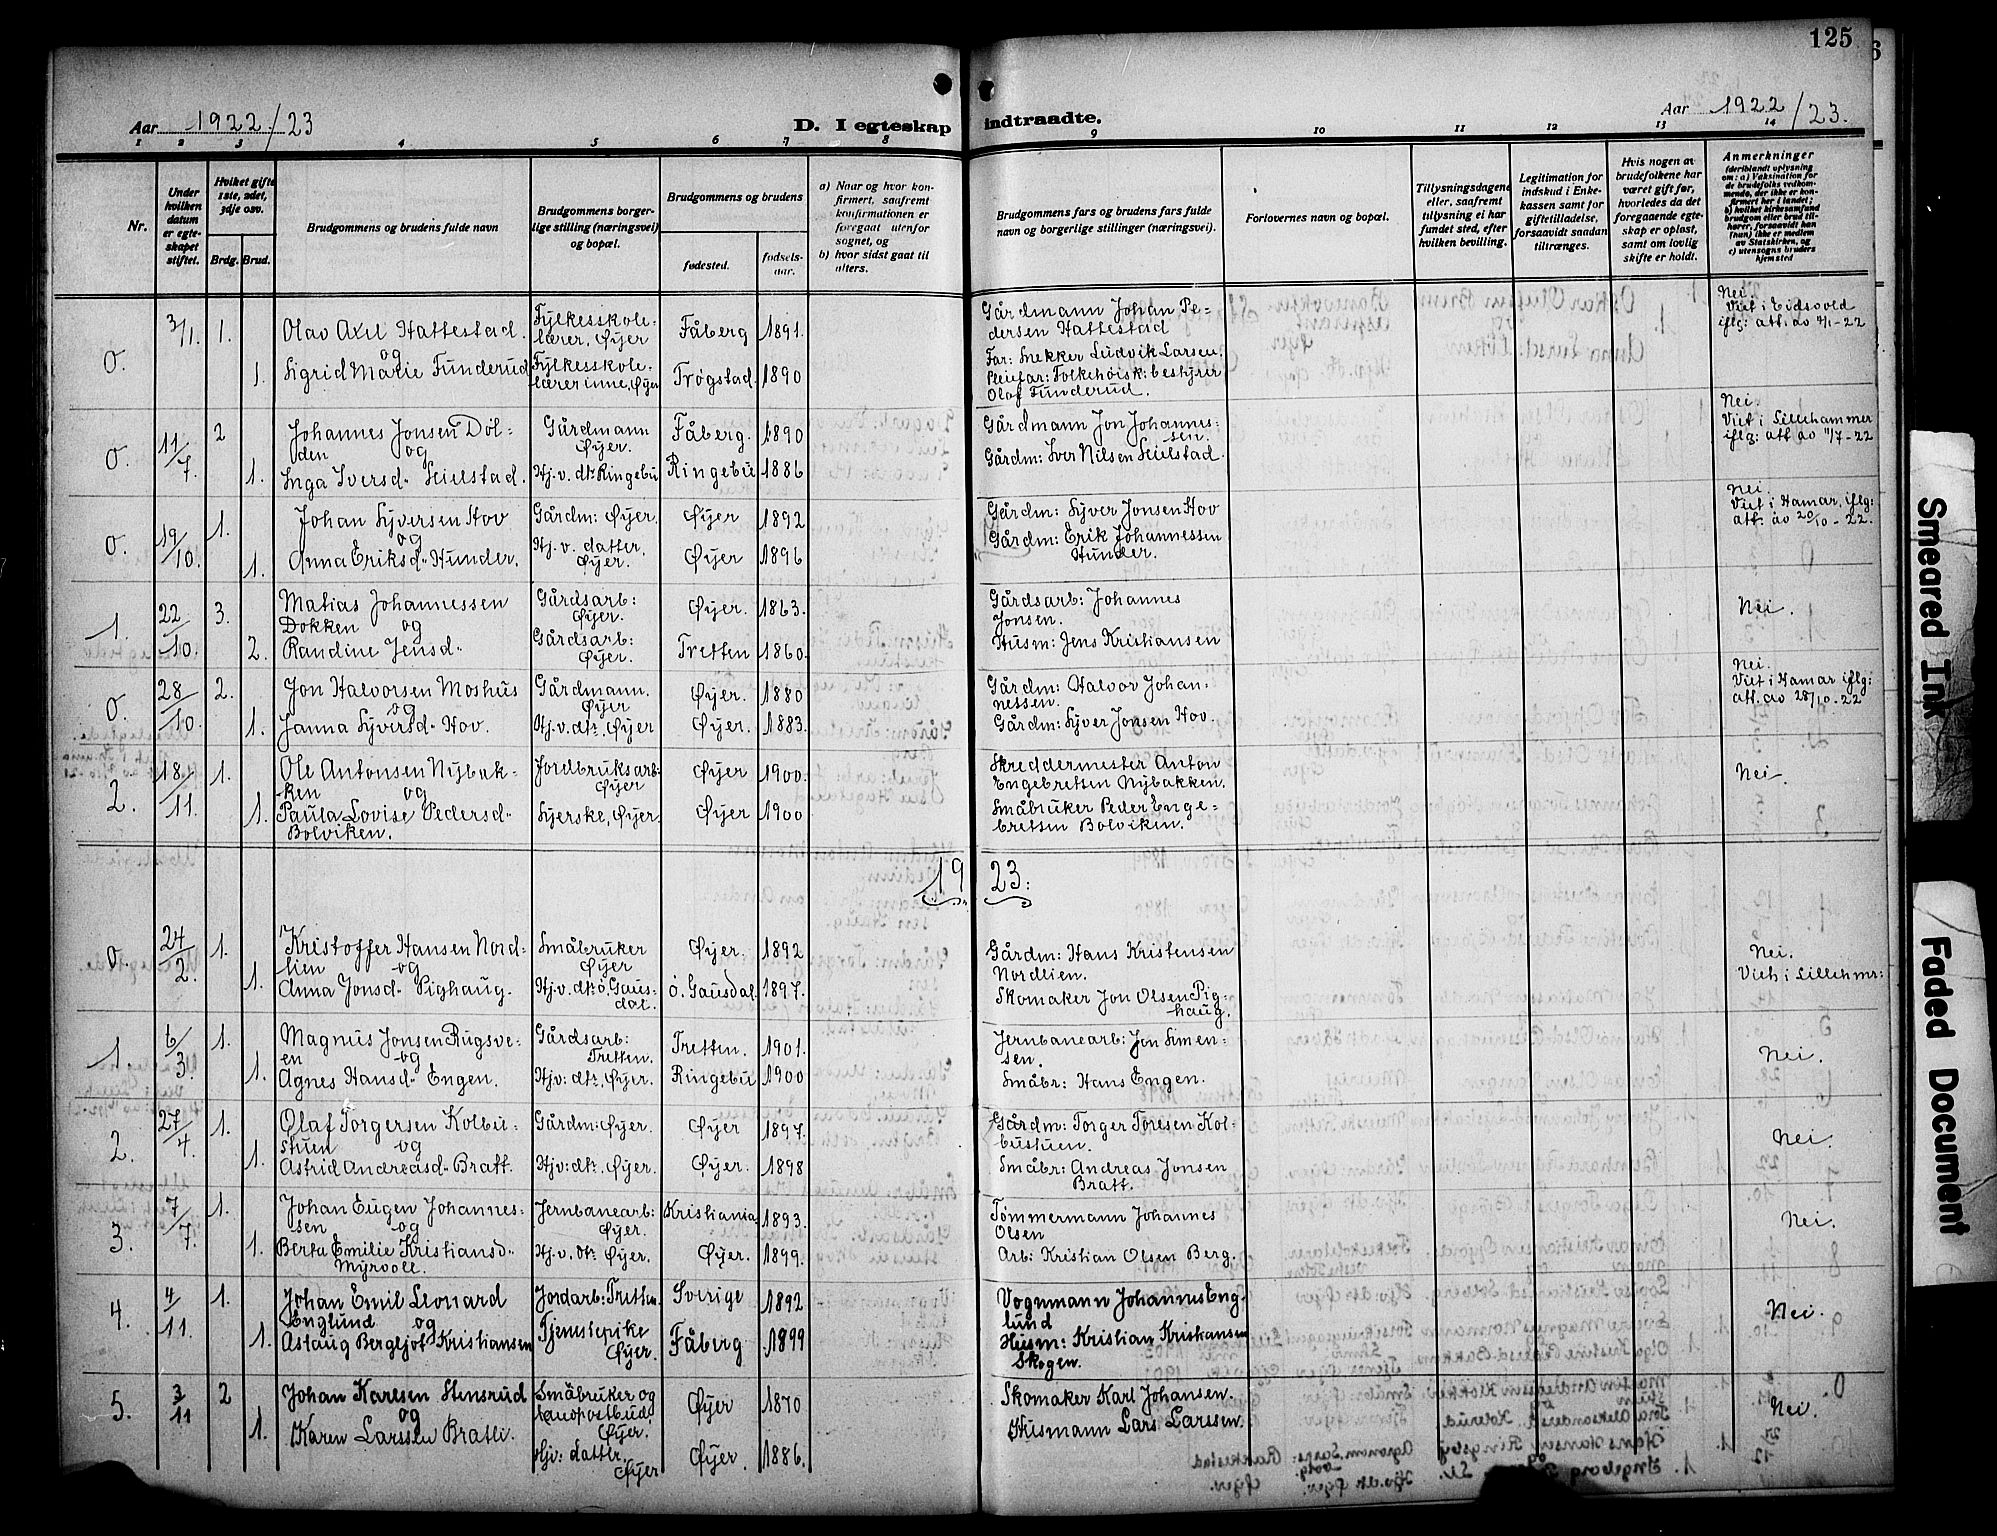 125
Aar 1922/23
D. I egteskap
indtraadte.
Aar 1922/23.
1 2 3 4 5 6 7 8 9 10 11 12 13 14
Nr.
Under hvilken datum er egteskapet stiftet.
Hvilket gifte 1ste, 2det, 3dje osv.
Brdg. Brud.
Brudgommens og brudens fulde navn
Brudgommens borgerlige stilling (næringsvei) og bopæl.
Brudgommens og brudens
fødested.
fødselsaar.
a) Naar og hvor konfirmert, saafremt konfirmationen er foregaat utenfor sognet, og
b) hvor sidst gaat til alters.
Brudgommens fars og brudens fars fulde navn og borgerlige stillinger (næringsvei).
Forlovernes navn og bopæl.
Tillysningsdagene eller, saafremt tillysning ei har fundet sted, efter hvilken bevilling.
Legitimation for indskud i Enkekassen samt for giftetilladelse, forsaavidt saadan tiltrænges.
Hvis nogen av brudefolkene har været gift før, hvorledes da det foregaaende egteskap er opløst, samt om lovlig skifte er holdt.
Anmerkninger
(deriblandt oplysning om: a) Vaksination for de brudefolks vedkommende, der ikke er konfirmert her i landet; b) hvilket kirkesamfund brudgom eller brud tilhører, forsaavidt han (hun) ikke er medlem av Statskirken, og c) utensogns bruders hjemsted
0. 3/1 1. Olav Axel Hattestad. Fylkesskolelærer, Øyer Fåberg 1891. Gårdmann Johan Pedersen Hattestad Nei. Viet i Eidsvold iflg: att. av 4/1-22
og
1. Sigrid Marie Funderud Fylkesskolelærerinne, Øyer Trøgstad 1890 Far: Snekker Ludvik Larsen. Pleiefar: Folkehøisk: bestyrer Olaf Funderud.
0. 11/7 2 Johannes Jonsen Dølden og Gårdmann Øyer. Fåberg. 1890 Gårdmann Jon Johannessen. Nei. Viet i Lillehammer iflg: att av 11/7-22
1. Inga Iversd. Seielstad. Hj.v. dt: Ringebu Ringebu 1886 Gårdm: Iver Nilsen Seielstad.
0. 19/10. 1. Johan Syversen Hov og Gårdm: Øyer. Øyer 1892 Gårdm: Syver Jonsen Hov Nei. Viet i Hamar, iflg: att: av 20/10-22.
1. Anna Eriksd. Hunder. Hj. v. datter, Øyer. Øyer 1896 Gårdm: Erik Johannessen Hunder.
1. 22/10 3. Matias Johannessen Dokken og Gårdsarb: Øyer. Øyer. 1863. Gårdsarb: Johannes Jonsen. Nei.
2. Randine Jensd. Gårdsarb: Øyer. Tretten 1860. Husm: Jens Kristiansen
0. 28/10. 2. Jon Halvorsen Moshus og Gårdmann. Øyer Øyer. 1880 Gårdm: Halvor Johannessen. Nei. Viet i Hamar iflg: att. av 28/10-22
1. Janna Syversd. Hov. Hj.v. dt:, Øyer Øyer. 1883. Gårdm: Syver Jonsen Hov.
2. 18/11. 1. Ole Antonsen Nybakken og Jordbruksarb: Øyer Øyer 1900. Skreddermester Anton Engebretsen Nybakken. Nei.
1. Paula Lovise Pedersd. Bolviken. Syerske, Øyer. Øyer 1900 Småbruker Peder Engebretsen Bolviken.
19 23:
0. 24/2. 1. Kristoffer Hansen Nordlien og Småbruker Øyer Øyer. 1892 Gårdm: Hans Kristensen Nordlien. Nei. Viet i Lillehmr:
1. Anna Jonsd. Pighaug. Hj.v. dt: ö. Gausdal ö. Gausdal. 1897. Skomaker Jon Olsen Pighaug.
1. 6/3. 1. Magnus Jonsen Rugsveen og Gårdsarb: Tretten. Tretten. 1901. Jernbanearb: Jon Simensen. Nei.
1. Agnes Hansd. Engen. Hj.v: dt:, Øyer. Ringebu 1900 Småbr: Hans Engen.
2. 27/4. 1. Olaf Torgersen Kolbustuen og Gårdm: Øyer. Øyer 1897. Gårdm: Torger Toresen Kolbustuen. Nei.
1. Astrid Andreasd. Bratt. Hj.v: dt:, Øyer. Øyer. 1898 Småbr: Andreas Jonsen Bratt.
3. 7/7. 1. Johan Eugen Johannessen og Jernbanearb: Øyer. Kristiania 1893. Tømmermann Johannes Olsen Nei.
1. Berta Emilie Kristiansd. Myrvoll. Hj.v. dt: Øyer. Øyer. 1899. Arb: Kristian Olsen Berg.
4. 4/11. 1. Johan Emil Leonard Englund og Jordarb: Tretten. Sverige 1892 Vognmann Johannes Englund Nei.
1. Astaug Bergljot Kristiansen Tjenestepike Øyer. Fåberg 1899 Husm: Kristian Kristiansen Skogen.
5. 3/11 2 Johan Karlsen Stensrud og Småbruker og landpostbud, Øyer. Øyer 1870 Skomaker Karl Johansen. Nei.
1. Karen Larssen Bratli. Hj.v: datter, Øyer Øyer. 1886. Husmann Lars Larssen.
Smeared Ink
Faded Document